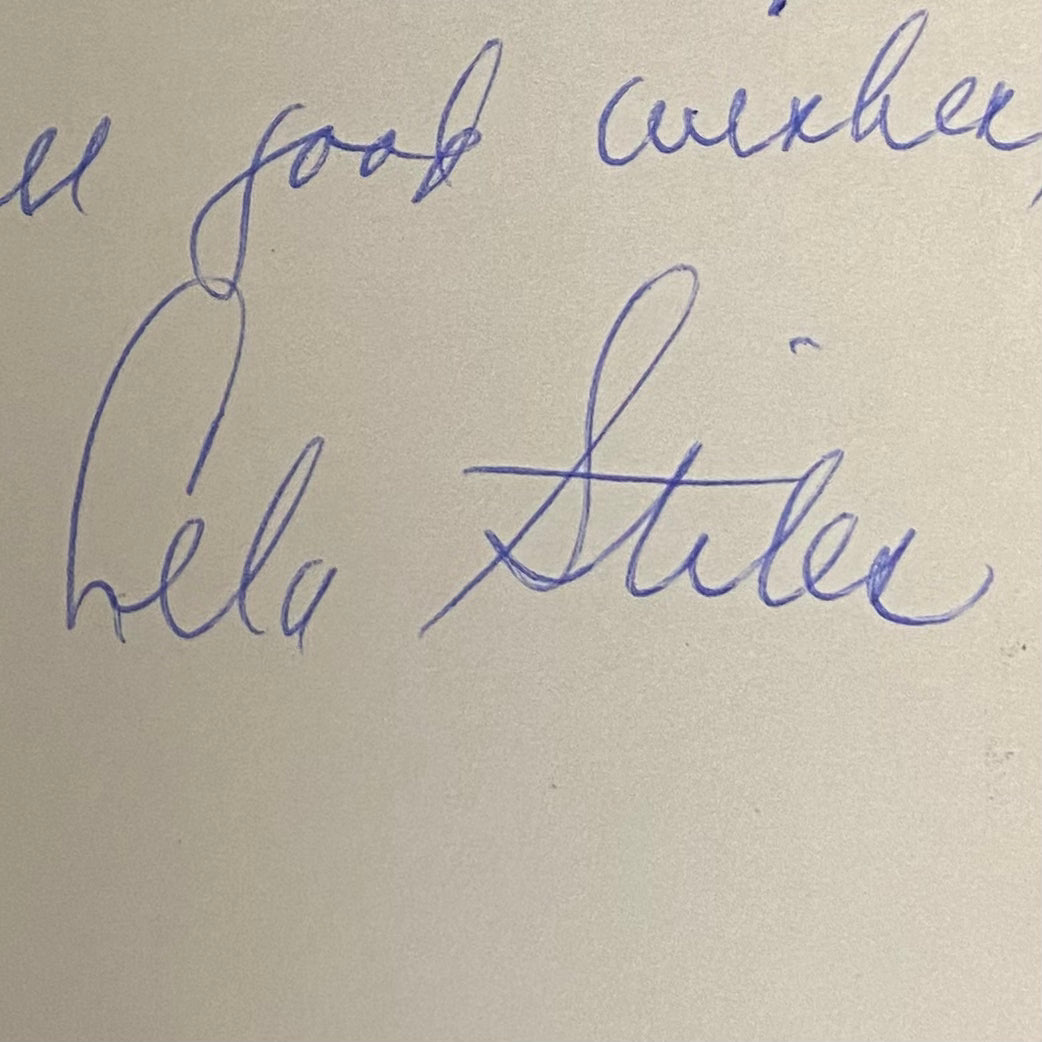 all good wishes,
Lela Stiles